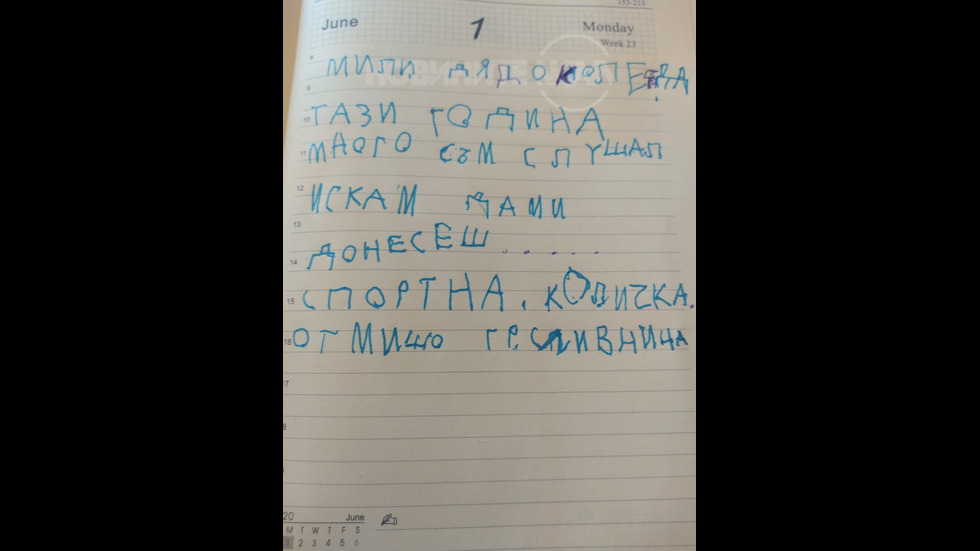 153-213
June 1 Monday
Week 23
8
МИЛИ ДЯДО КОЛЕДА
9
10 ТАЗИ ГОДИНА
11 МНОГО СЪМ СЛУШАЛ
12 ИСКАМ ДАМИ
13
ДОНЕСЕШ . . . . .
14
15 СПОРТНА . КОЛИЧКА .
16 ОТ МИШО ГР. СЛИВНИЦА
17
20 June
M T W T F S
1 2 3 4 5 6